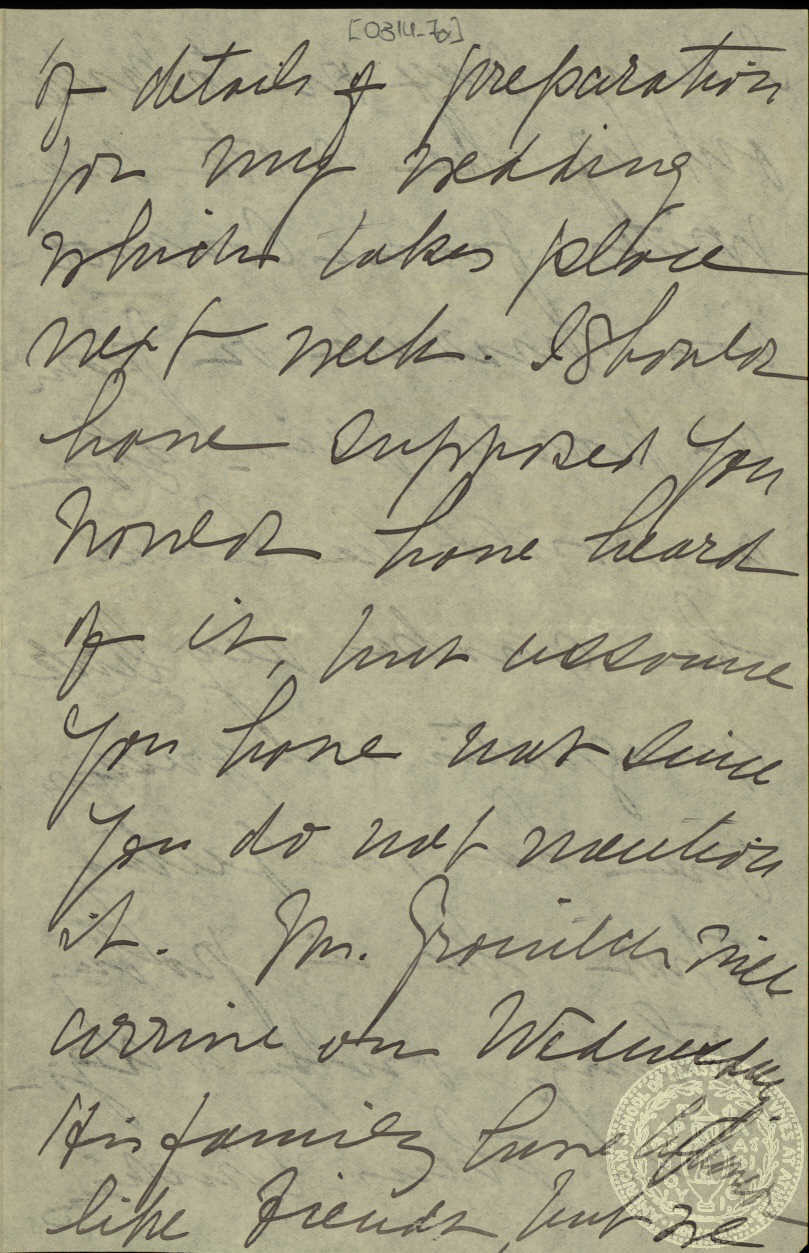 [0314-7a]
of details of preparation
for my wedding
which takes place
next week. I should
have supposed you
would have heard
of it, but assume
you have not since
you do not mention
it. Mr. will
arrive on Wednesday.
His family have
like friends, but we